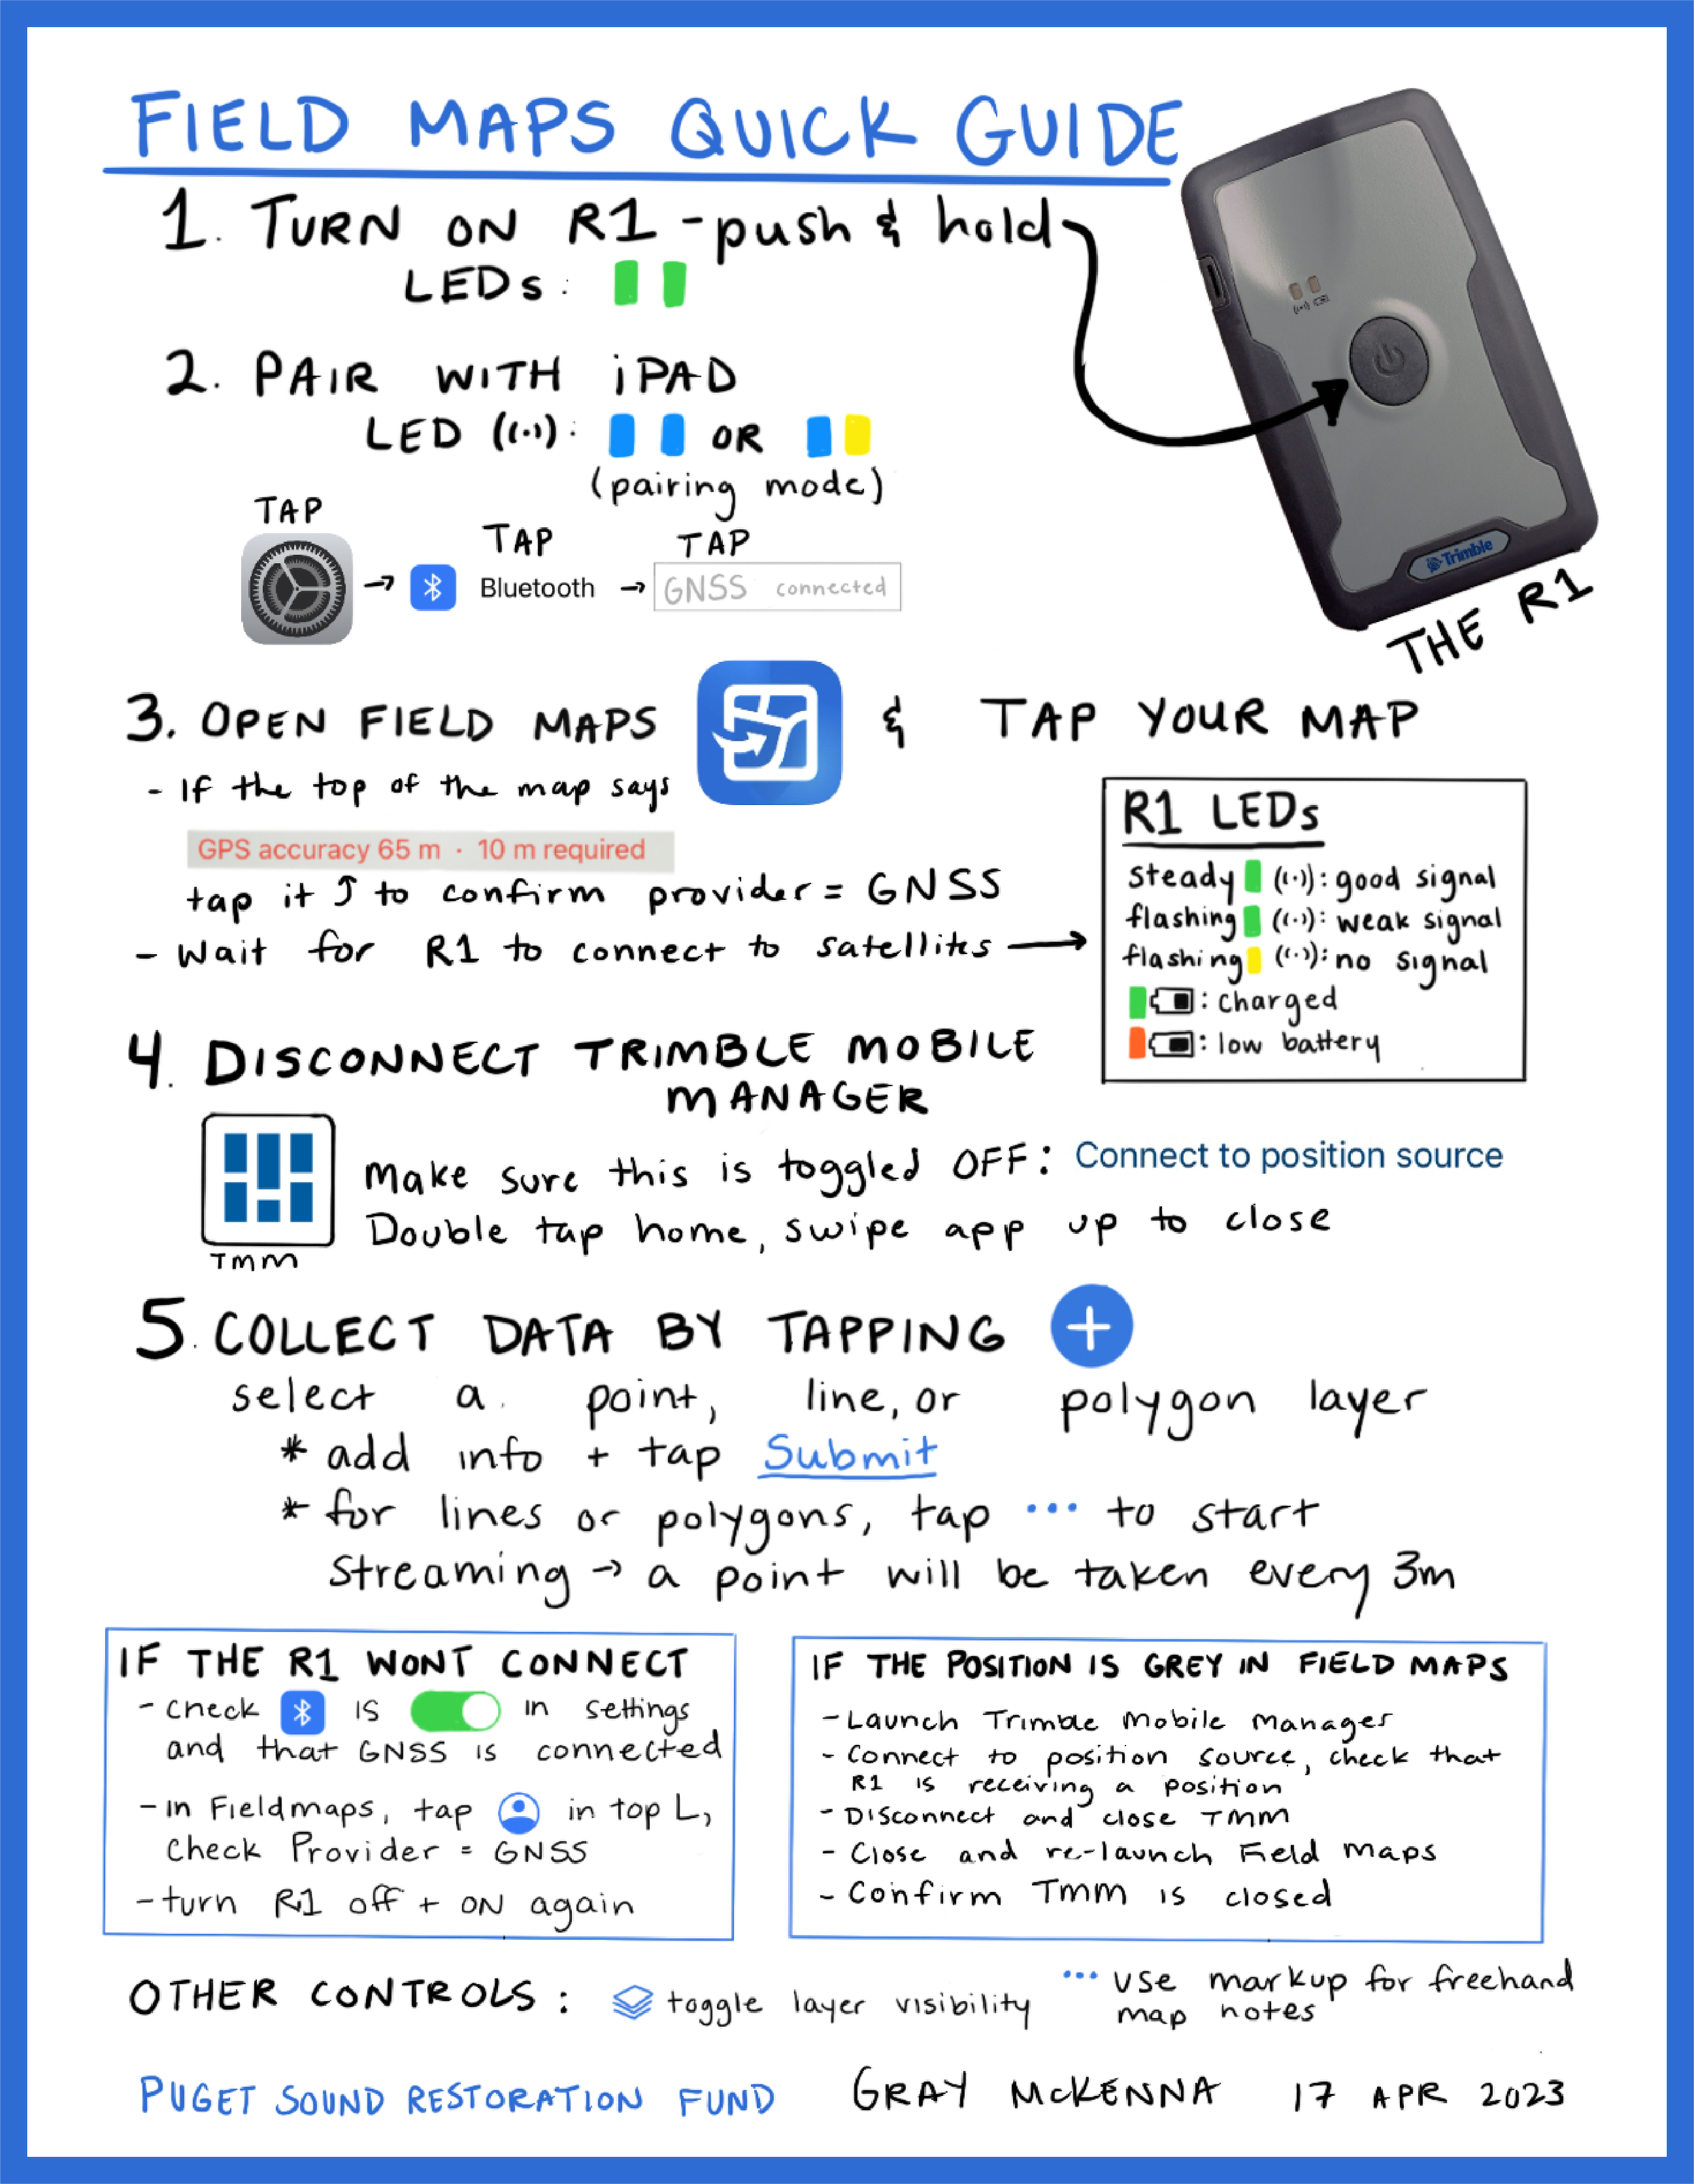 FIELD MAPS QUICK GUIDE
1. TURN ON R1 - push & hold
LEDs:
2. PAIR WITH iPAD
LED ((·)): OR
(pairing mode)
TAP
TAP
TAP
→ Bluetooth → GNSS connected
Trimble
THE R1
3. OPEN FIELD MAPS & TAP YOUR MAP
- If the top of the map says
GPS accuracy 65 m · 10 m required
tap it ↑ to confirm provider = GNSS
- Wait for R1 to connect to satellites →
R1 LEDs
steady ((·)): good signal
flashing ((·)): weak signal
flashing ((·)): no signal
: charged
: low battery
4. DISCONNECT TRIMBLE MOBILE
MANAGER
TMM
Make sure this is toggled OFF: Connect to position source
Double tap home, swipe app up to close
5. COLLECT DATA BY TAPPING +
select a point, line, or polygon layer
* add info + tap Submit
* for lines or polygons, tap ... to start
streaming → a point will be taken every 3m
IF THE R1 WONT CONNECT
- check is in settings
and that GNSS is connected
- in Fieldmaps, tap in top L,
check Provider = GNSS
- turn R1 off + ON again
IF THE POSITION IS GREY IN FIELD MAPS
- Launch Trimble Mobile Manager
- Connect to position source, check that
R1 is receiving a position
- Disconnect and close TMM
- Close and re-launch Field Maps
- Confirm TMM is closed
OTHER CONTROLS: toggle layer visibility
... use markup for freehand
map notes
PUGET SOUND RESTORATION FUND
GRAY McKENNA 17 APR 2023